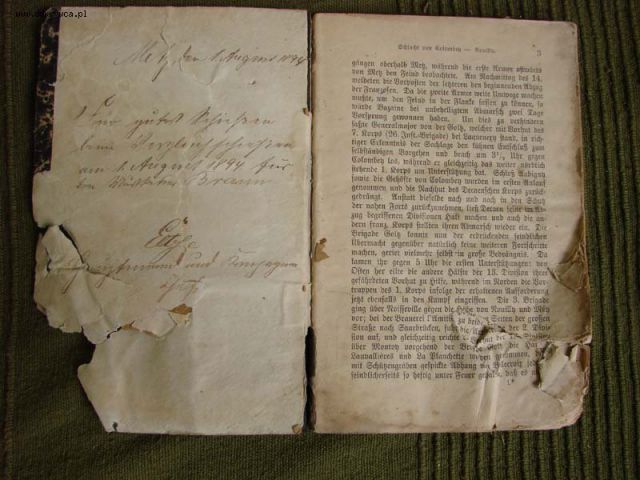 Metz, den 1. August 1894
Für gutes Schießen
beim
am 1. August 1894 für
den Musketier Braun
Hauptmann und Compagnie
Schlacht von Colombey — Nouilly.
3
gängen oberhalb Metz, während die erste Armee ostwärts
von Metz den Feind beobachtete. Am Nachmittag des 14.
meldeten die Vorposten der letzteren den beginnenden Abzug
der Franzosen. Da die zweite Armee weite Umwege machen
mußte, um den Feind in der Flanke fassen zu können, so
würde Bazaine bei unbehelligtem Abmarsch zwei Tage
Vorsprung gewonnen haben. Um dies zu verhindern
faßte Generalmajor von der Goltz, welcher mit Vorhut des
7. Korps (26. Inft.-Brigade) bei Laquenexy stand, in rich-
tiger Erkenntnis der Sachlage den kühnen Entschluß zum
selbständigen Vorgehen und brach um 3½ Uhr gegen
Colombey los, während er gleichzeitig das weiter nordwärts
stehende 1. Korps um Unterstützung bat. Schloß Aubigny
sowie die Gehöfte von Colombey wurden im ersten Anlauf
genommen und die Nachhut des Decaenschen Korps zurück-
gedrängt. Anstatt dieselbe nach und nach in den Schutz
der nahen Forts zurückzunehmen, ließ Decaen seine im Ab-
zug begriffenen Divisionen Halt machen und auch die an-
dern franz. Korps stellten ihren Abmarsch wieder ein. Die
Brigade Goltz konnte nun der erdrückenden feindlichen
Übermacht gegenüber natürlich keine weiteren Fortschritte
machen, geriet vielmehr selbst in große Bedrängnis. Da
kamen gegen 5 Uhr die ersten Unterstützungen: von
Osten her eilte die andere Hälfte der 13. Division ihrer
gefährdeten Vorhut zu Hilfe, während im Norden die Vor-
truppen des 1. Korps infolge der erhaltenen Aufforderung
jetzt ebenfalls in den Kampf eingriffen. Die 3. Brigade
ging über Noisseville gegen die Höhe von Nouilly und Mey
vor; bei der Brauerei l'Amitié zu beiden Seiten der großen
Straße nach Saarbrücken, fuhr die der 2. Divi-
sion auf, und gleichzeitig rechts mit der 13. Division
über Montoy vorgehend der Brigade Goltz die
Lauvallières und La Planchette wegen genommen,
mit Schützengräben gespickte Abhang von Bellecroix jedoch
feindlicherseits so heftig unter Feuer gehalten, daß es
1*
www.dobroni.pl